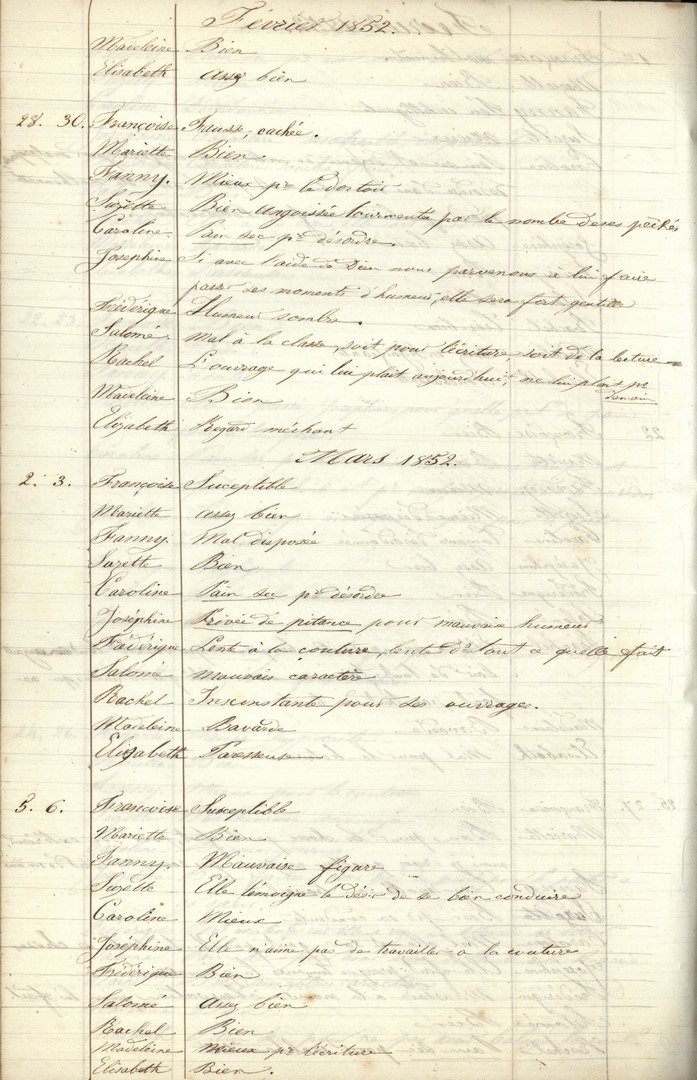 Février 1852.
Madeleine Bien
Elisabeth assz bien
28. 30. Françoise Fausse, cachée.
Mariette Bien
Fanny. Mieux pr le dortoir
Suzette Bien angoissée tourmentée par le nombre de ses péchés
Caroline Pain sec pr désordre.
Joséphine Si avec l'aide de Dieu nous parvenons à lui faire
passer ses moments d'humeur, elle sera fort gentille
Frédérique Humeur sombre.
Salomé. Mal à la classe, soit pour l'écriture, soit de la lecture
Rachel L'ouvrage qui lui plait aujourd'hui, ne lui plait ps
demain
Madeleine Bien
Elizabeth Regard méchant
Mars 1852.
2. 3. Françoise Suceptible
Mariette assez bien
Fanny. Mal disposée
Suzette Bien
Caroline Pain sec pr désordre
Joséphine Privée de pitance pour mauvaise humeur
Frédérique Lente à la couture, lente ds tout ce quelle fait
Salomé mauvais caractère
Rachel Inconstante pour ses ouvrages.
Madeleine Bavarde
Elizabeth Paresseuse
5. 6. Françoise Suceptible
Mariette Bien
Fanny. Mauvaise figure
Suzette Elle témoigne le désir de se bien conduire
Caroline Mieux
Joséphine Elle n'aime pas de travailler à la couture
Frédérique Bien
Salomé assez bien
Rachel Bien
Madeleine Mieux pr l'écriture
Elisabeth Bien.